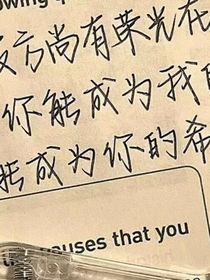 owing q
方尚有荣光在
你能成为我
能成为你的希
uses that you